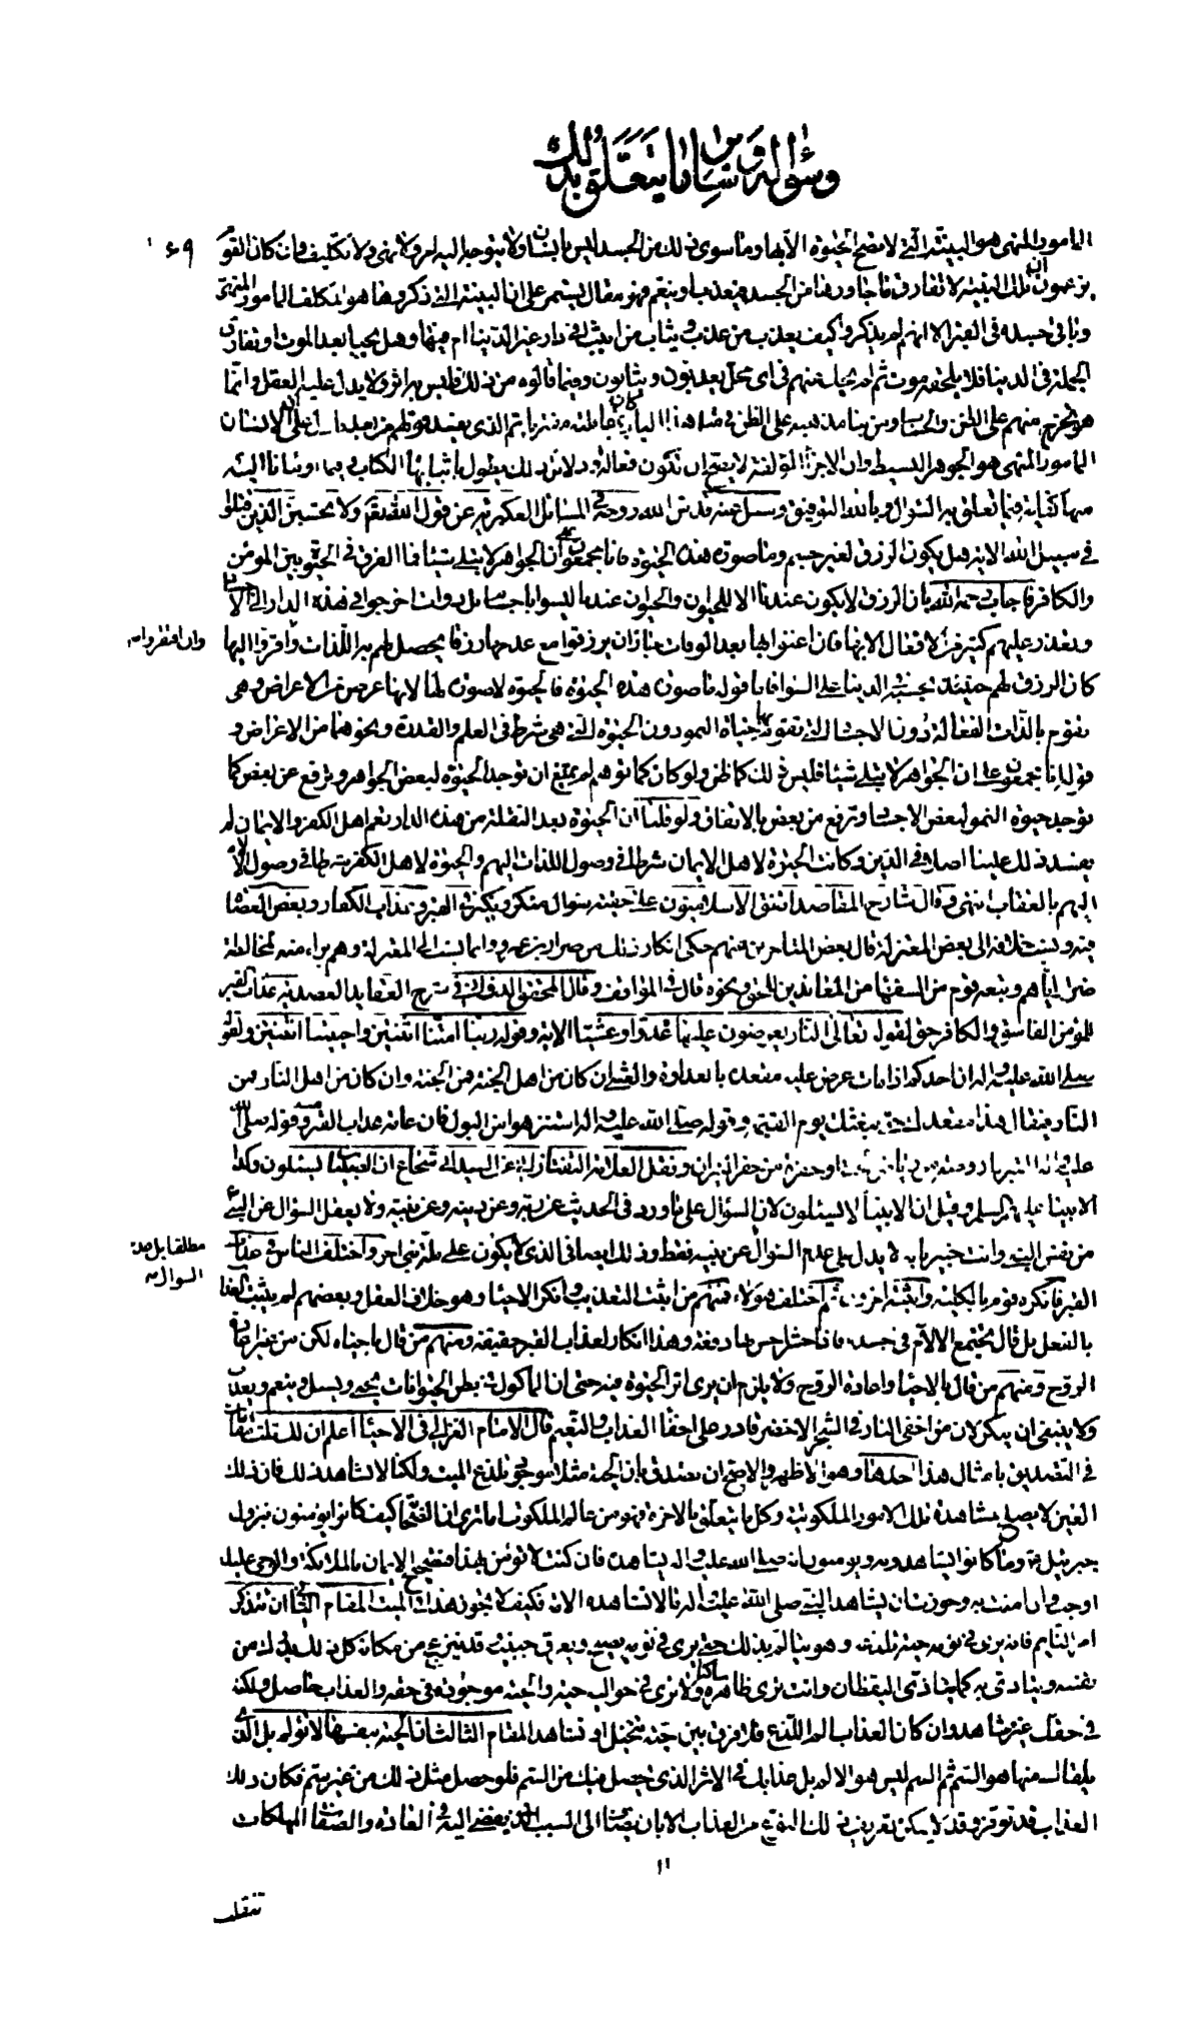 وسؤاله وسائر ما يتعلق بذلك
المأمور المنهي هو البنية التي لا تصح الحيوة الا بها وما سوى ذلك من الجسد ليس بانسان ولا يتوجه اليه امر ولا نهي ولا تكليف وان كان القوم
يزعمون ان تلك البنية لا تفارق ما جاورها من الجسد فيعذب او ينعم فهو مقال يستمر على ان البنية التي ذكروها هو المكلف المأمور المنهي
وباقي جسده في القبر الا انهم لم يذكروا كيف يعذب من عذب ويثاب من اثيب افي دار غير الدنيا ام فيها وهل يحيى بعد الموت او تفارق
الجملة في الدنيا فلا يلحقه موت ثم لم يحك عنهم في اي محل يعذبون ويثابون وفيما قالوه من ذلك فليس به اثر ولا يدل عليه العقل وانما
هو تخرج منهم على الظن والحساب ومن بنى مذهبه على الظن في مثل هذا الباب كان
المأمور المنهي هو الجوهر البسيط وان الاجزاء المؤلفة لا يصح ان تكون فعالة ودلائل ذلك يطول باثباتها الكتاب وفيما اومأنا اليه
منها كفاية فيما تعلق به السؤال وبالله التوفيق وسئل عنه قدس الله روحه في المسائل العكبرية عن قول الله تعالى ولا تحسبن الذين قتلوا
في سبيل الله الاية هل يكون الرزق لغير جسم وما صورة هذه الحيوة فانا مجمعون على ان الجواهر لا تبلى شيئا فما الفرق في الحيوة بين المؤمن
والكافر فاجاب رحمه الله بان الرزق لا يكون عندنا الا للحيوان والحيوان عندنا ليسوا باجسام بل ذوات اخرجوا في هذه الدار الى الاجساد
وتعذر عليهم كثير من الافعال الا بها فان اغنوا عنها بعد الوفات جاز ان يرزقوا مع عدمها رزقا يحصل لهم به اللذات وان افتقروا اليها
كان الرزق لهم حينئذ بحسبه في الدنيا على السواء فاما قوله ما صورة هذه الحيوة فالحيوة لا صورة لها لانها عرض من الاعراض وهي
تقوم بالذات الفعالة دون الاجساد التي تقوم بها حياة النمو دون الحيوة التي هي شرط في العلم والقدرة ونحوهما من الاعراض و
قوله انا مجمعون على ان الجواهر لا تبلى شيئا فليس ذلك كما ظن ولو كان كما توهم لم يمتنع ان توجد الحيوة لبعض الجواهر وترفع عن بعض كما
توجد حيوة النمو لبعض الاجساد وترفع من بعض بالاتفاق ولو قلنا ان الحيوة بعد النقلة من هذه الدار تعم اهل الكفر والايمان لم
يفسد ذلك علينا اصلا في الدين وكانت الحيوة لاهل الايمان شرطا في وصول اللذات اليهم والحيوة لاهل الكفر شرطا في وصول الآلام
اليهم بالعقاب انتهى وقال شارح المقاصد اتفق الاسلاميون على حقية سؤال منكر ونكير في القبر وعذاب الكفار وبعض العصاة
فيه ونسب خلافه الى بعض المعتزلة قال بعض المتأخرين منهم حكى انكار ذلك عن ضرار بن عمرو وانما نسب الى المعتزلة وهم براء منه لمخالطة
ضرار اياهم وتبعه قوم من السفهاء من المعاندين للحق ونحوه قال في المواقف وقال المحقق الدواني في شرح العقايد العضدية عذاب القبر
للمؤمن الفاسق والكافر حق لقوله تعالى النار يعرضون عليها غدوا وعشيا الاية وقوله ربنا امتنا اثنتين واحييتنا اثنتين ولقوله
صلى الله عليه واله ان احدكم اذا مات عرض عليه مقعده بالغداوة والعشي ان كان من اهل الجنة فمن الجنة وان كان من اهل النار فمن
النار فيقال هذا مقعدك حتى يبعثك يوم القيمة وقوله صلى الله عليه واله استنزهوا من البول فان عامة عذاب القبر منه وقوله صلى الله
عليه واله القبر اما روضة من رياض الجنة او حفرة من حفر النيران ونقل العلامة التفتازاني عن السيد ابي شجاع ان الصبيان يسئلون وكذا
الانبياء عليهم السلم وقيل ان الانبياء لا يسئلون لان السؤال على ما ورد في الحديث عن ربه وعن دينه وعن نبيه ولا يعقل السؤال عن النبي
من نفس النبي وانت خبير بانه لا يدل على عدم السؤال عن نبيه فقط وذلك ايضا في الذي لا يكون على ملة نبي اخر واختلف الناس في عذاب
القبر فانكره قوم بالكلية واثبته اخرون ثم اختلف هؤلاء فمنهم من اثبت التعذيب وانكر الاحياء وهو خلاف العقل وبعضهم لم يثبت العذاب
بالفعل بل قال تجتمع الآلام في جسده فاذا حشر احس بها دفعة وهذا انكار لعذاب القبر حقيقة ومنهم من قال باحيائه لكن من غير اعادة
الروح ومنهم من قال بالاحياء واعادة الروح ولا يلزم ان يرى اثر الحيوة فيه حتى ان المأكول في بطن الحيوانات يحيى ويسئل وينعم ويعذب
ولا ينبغي ان ينكر لان من اخفى النار في الشجر الاخضر قادر على اخفاء العذاب والنعيم قال الامام الغزالي في الاحياء اعلم ان لك ثلث مقامات
في التصديق بامثال هذا احدها وهو الاظهر والاصح ان تصدق بان الحية مثلا موجودة تلدغ الميت ولكنا لا نشاهد ذلك فان ذلك
العين لا يصلح لمشاهدة تلك الامور الملكوتية وكل ما يتعلق بالاخرة فهو من عالم الملكوت اما ترى ان الصحابة كيف كانوا يؤمنون بنزول
جبرئيل ع وما كانوا يشاهدونه ويؤمنون انه صلى الله عليه واله يشاهده فان كنت لا تؤمن بهذا فتصحيح الايمان بالملائكة والوحي عليك
اوجب وان امنت به وجوزت ان يشاهد النبي صلى الله عليه واله ما لا تشاهده الامة فكيف لا تجوز هذا في الميت المقام الثاني ان تتذكر
امر النائم فانه يرى في نومه حية تلدغه وهو يتألم بذلك حتى يرى في نومه يصيح ويعرق جبينه وقد ينزعج من مكانه كل ذلك يدرك من
نفسه ويتأذى به كما يتأذى اليقظان وانت ترى ظاهره ساكنا ولا ترى في حواليه حية والحية موجودة في حقه والعذاب حاصل ولكنه
في حقك غير مشاهد وان كان العذاب الم اللدغ فلا فرق بين حية تتخيل او تشاهد المقام الثالث ان الحية بنفسها لا تولم بل الذي
يلقاك منها هو السم ثم السم ليس هو الالم بل عذابك في الاثر الذي يحصل فيك من السم فلو حصل مثل ذلك من غير سم فكان ذلك
العذاب قد توفر وقد لا يمكن تعريف ذلك النوع من العذاب الا بان يضاف الى السبب الذي يفضي اليه في العادة والصفات المهلكات
١١
تنقلب